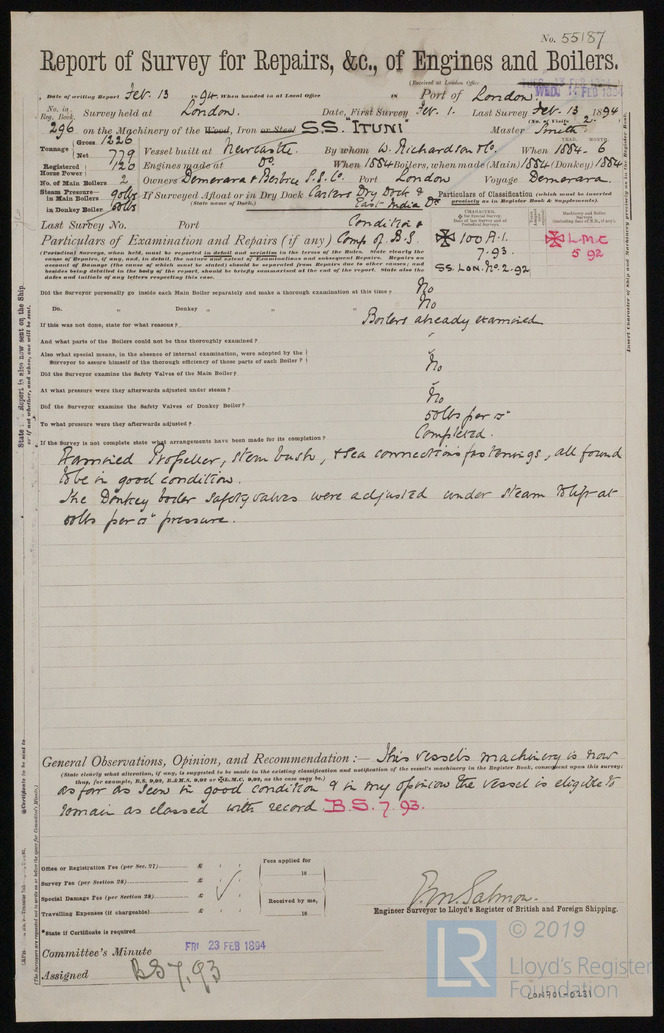 No. 55187
Report of Survey for Repairs, &c., of Engines and Boilers.
(Received at London Office
WED. 14 FEB 1894
Date of writing Report Feb. 13 1894. When handed in at Local Office 18 Port of London.
No. in Reg. Book. Survey held at London. Date, First Survey Feb. 1. Last Survey Feb. 13 1894
(No. of Visits 2.)
296 on the Machinery of the Wood, Iron or Steel S.S. "ITUNI" Master Smith
Tonnage Gross 1226
Net 779 Vessel built at Newcastle. By whom W. Richardson & Co. When 1884 - 6
YEAR. MONTH.
Registered Horse Power 120 Engines made at Do. When 1884 Boilers, when made (Main) 1884 (Donkey) 1884
No. of Main Boilers 2 Owners Demerara & Berbice S.S. Co. Port London Voyage Demerara.
Steam Pressure in Main Boilers 90 lbs If Surveyed Afloat or in Dry Dock Dry Dock & East India Do
in Donkey Boiler (State name of Dock.)
Particulars of Classification (which must be inserted precisely as in Register Book & Supplements).
Last Survey No. Port
Particulars of Examination and Repairs (if any) Condition & Comp of B.S.
CHARACTER.
Machinery and Boiler Surveys
✠ 100 A.1.
7.93.
SS. LON. No. 2. 92
✠ L.M.C
5 92
(Periodical) Surveys, when held, must be reported in detail and seriatim in the terms of the Rules. State clearly the cause of Repairs, if any, and, in detail, the nature and extent of Examinations and subsequent Repairs. Repairs on account of Damage (the cause of which must be stated) should be separated from Repairs due to other causes; and besides being detailed in the body of the report, should be briefly summarised at the end of the report. State also the dates and initials of any letters respecting this case.
Did the Surveyor personally go inside each Main Boiler separately and make a thorough examination at this time? No
Do. " Donkey " " " No
If this was not done, state for what reasons? Boilers already examined
And what parts of the Boilers could not be thus thoroughly examined?
Also what special means, in the absence of internal examination, were adopted by the
Surveyor to assure himself of the thorough efficiency of those parts of each Boiler?
Did the Surveyor examine the Safety Valves of the Main Boiler? No
At what pressure were they afterwards adjusted under steam?
Did the Surveyor examine the Safety Valves of Donkey Boiler? No
To what pressure were they afterwards adjusted? 50 lbs per □"
If the Survey is not complete state what arrangements have been made for its completion? Completed.
Examined Propeller, stern bush, & sea connections fastenings, all found
to be in good condition.
The Donkey boiler safety valves were adjusted under steam to lift at
lbs per □" pressure.
General Observations, Opinion, and Recommendation :— This vessel's machinery is now
(State clearly what alteration, if any, is suggested to be made in the existing classification and notification of the vessel's machinery in the Register Book, consequent upon this survey;
thus, for example, B.S. 9,92, B.&M.S. 9,92 or ✠L.M.C. 9,92, as the case may be.)
as far as seen in good condition & in my opinion the vessel is eligible to
remain as classed with record B.S. 7. 93.
Office or Registration Fee (per Sec. 27) £ : :
Survey Fee (per Section 28) £ : :
Special Damage Fee (per Section 28) £ : :
Travelling Expenses (if chargeable) £ : :
Fees applied for
18
Received by me,
18
*State if Certificate is required
Salmon.
Engineer Surveyor to Lloyd's Register of British and Foreign Shipping.
Committee's Minute FRI 23 FEB 1894
Assigned B.S 7,93
LR
© 2019
Lloyd's Register
Foundation
LON701-0231